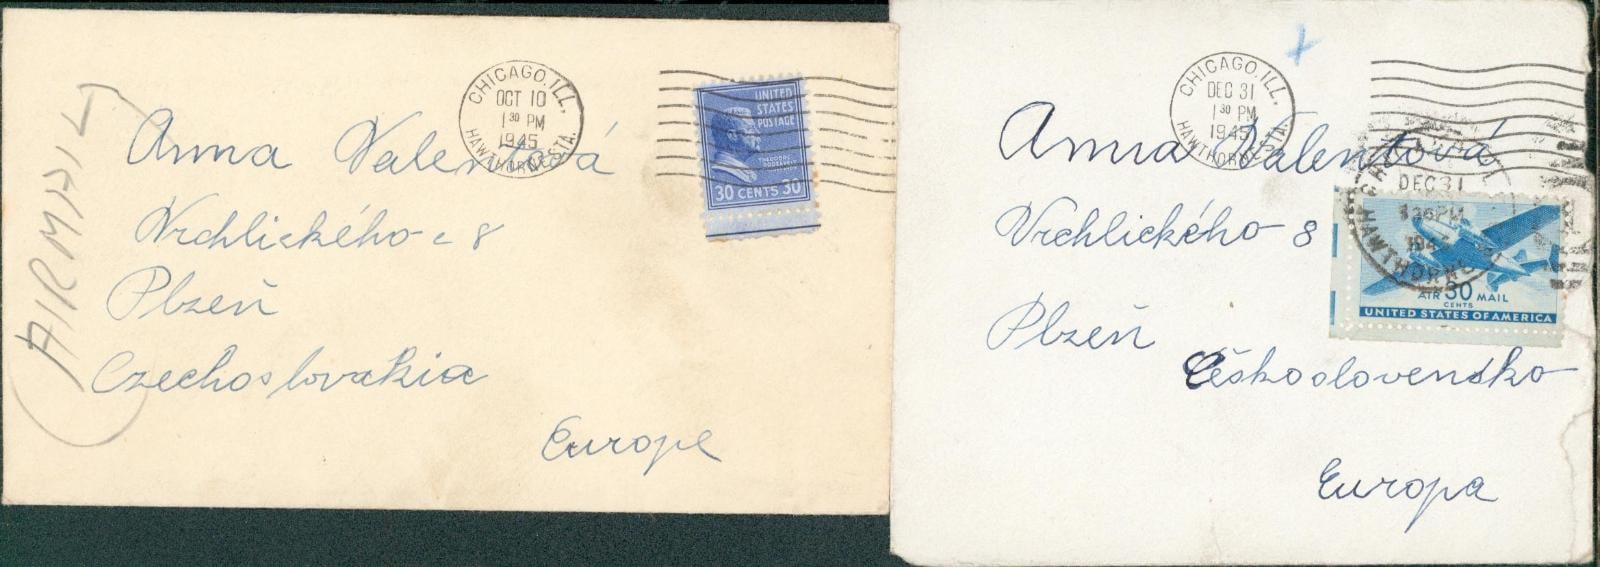 AIRMAIL
CHICAGO, ILL.
OCT 10
1 30 PM
1945
HAWTHORNE STA.
UNITED
STATES
POSTAGE
THEODORE
ROOSEVELT
30 CENTS 30
Anna Valentová
Vrchlického č 8
Plzeň
Czechoslovakia
Europe
CHICAGO, ILL.
DEC 31
1 30 PM
1945
HAWTHORNE STA.
DEC 31
1 30 PM
HAWTHORNE
AIR 30 MAIL
CENTS
UNITED STATES OF AMERICA
Anna Valentová
Vrchlického 8
Plzeň
Českoslovendko
Europa